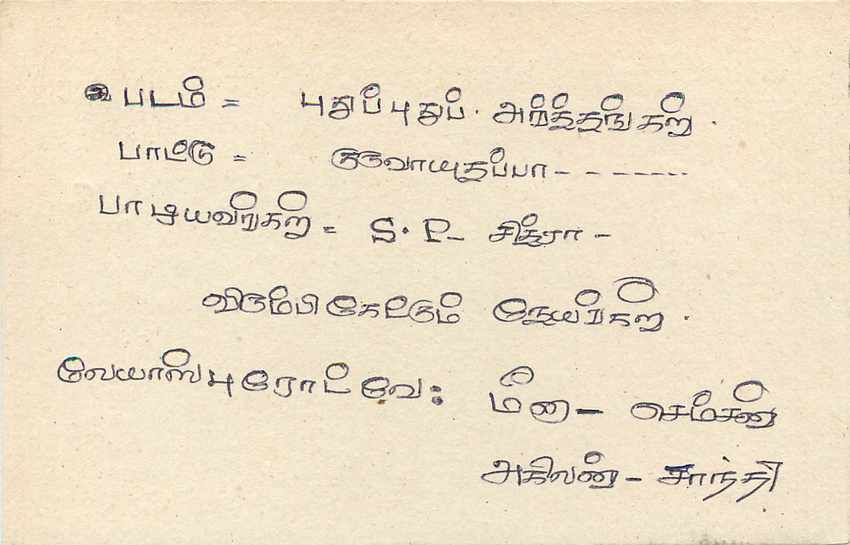 படம் = புதுப்புதுப். அர்த்தங்கள்.
பாட்டு = குருவாயுரப்பா - - - - - - -
பாடியவர்கள் = S. P - சித்ரா -
விரும்பி கேட்கும் நேயர்கள்.
மீனா - செம்சன்
அகிலன் - சாந்தி